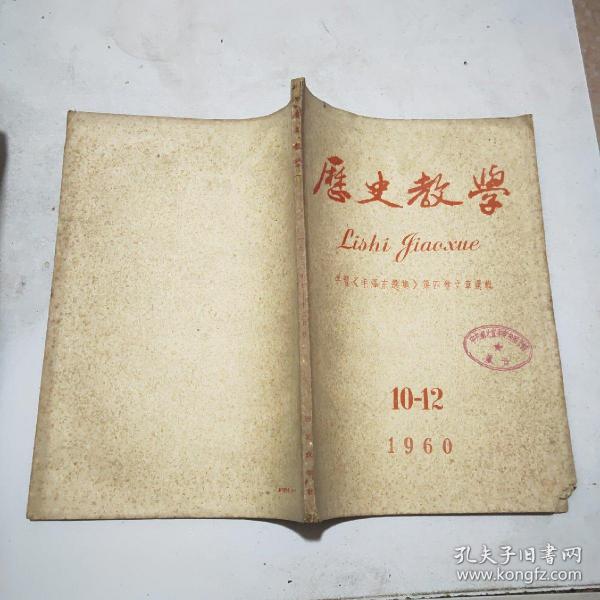 歷史教學
Lishi Jiaoxue
学習《毛澤东選集》第四卷文章選輯
10-12
1960
孔夫子旧书网
www.kongfz.com